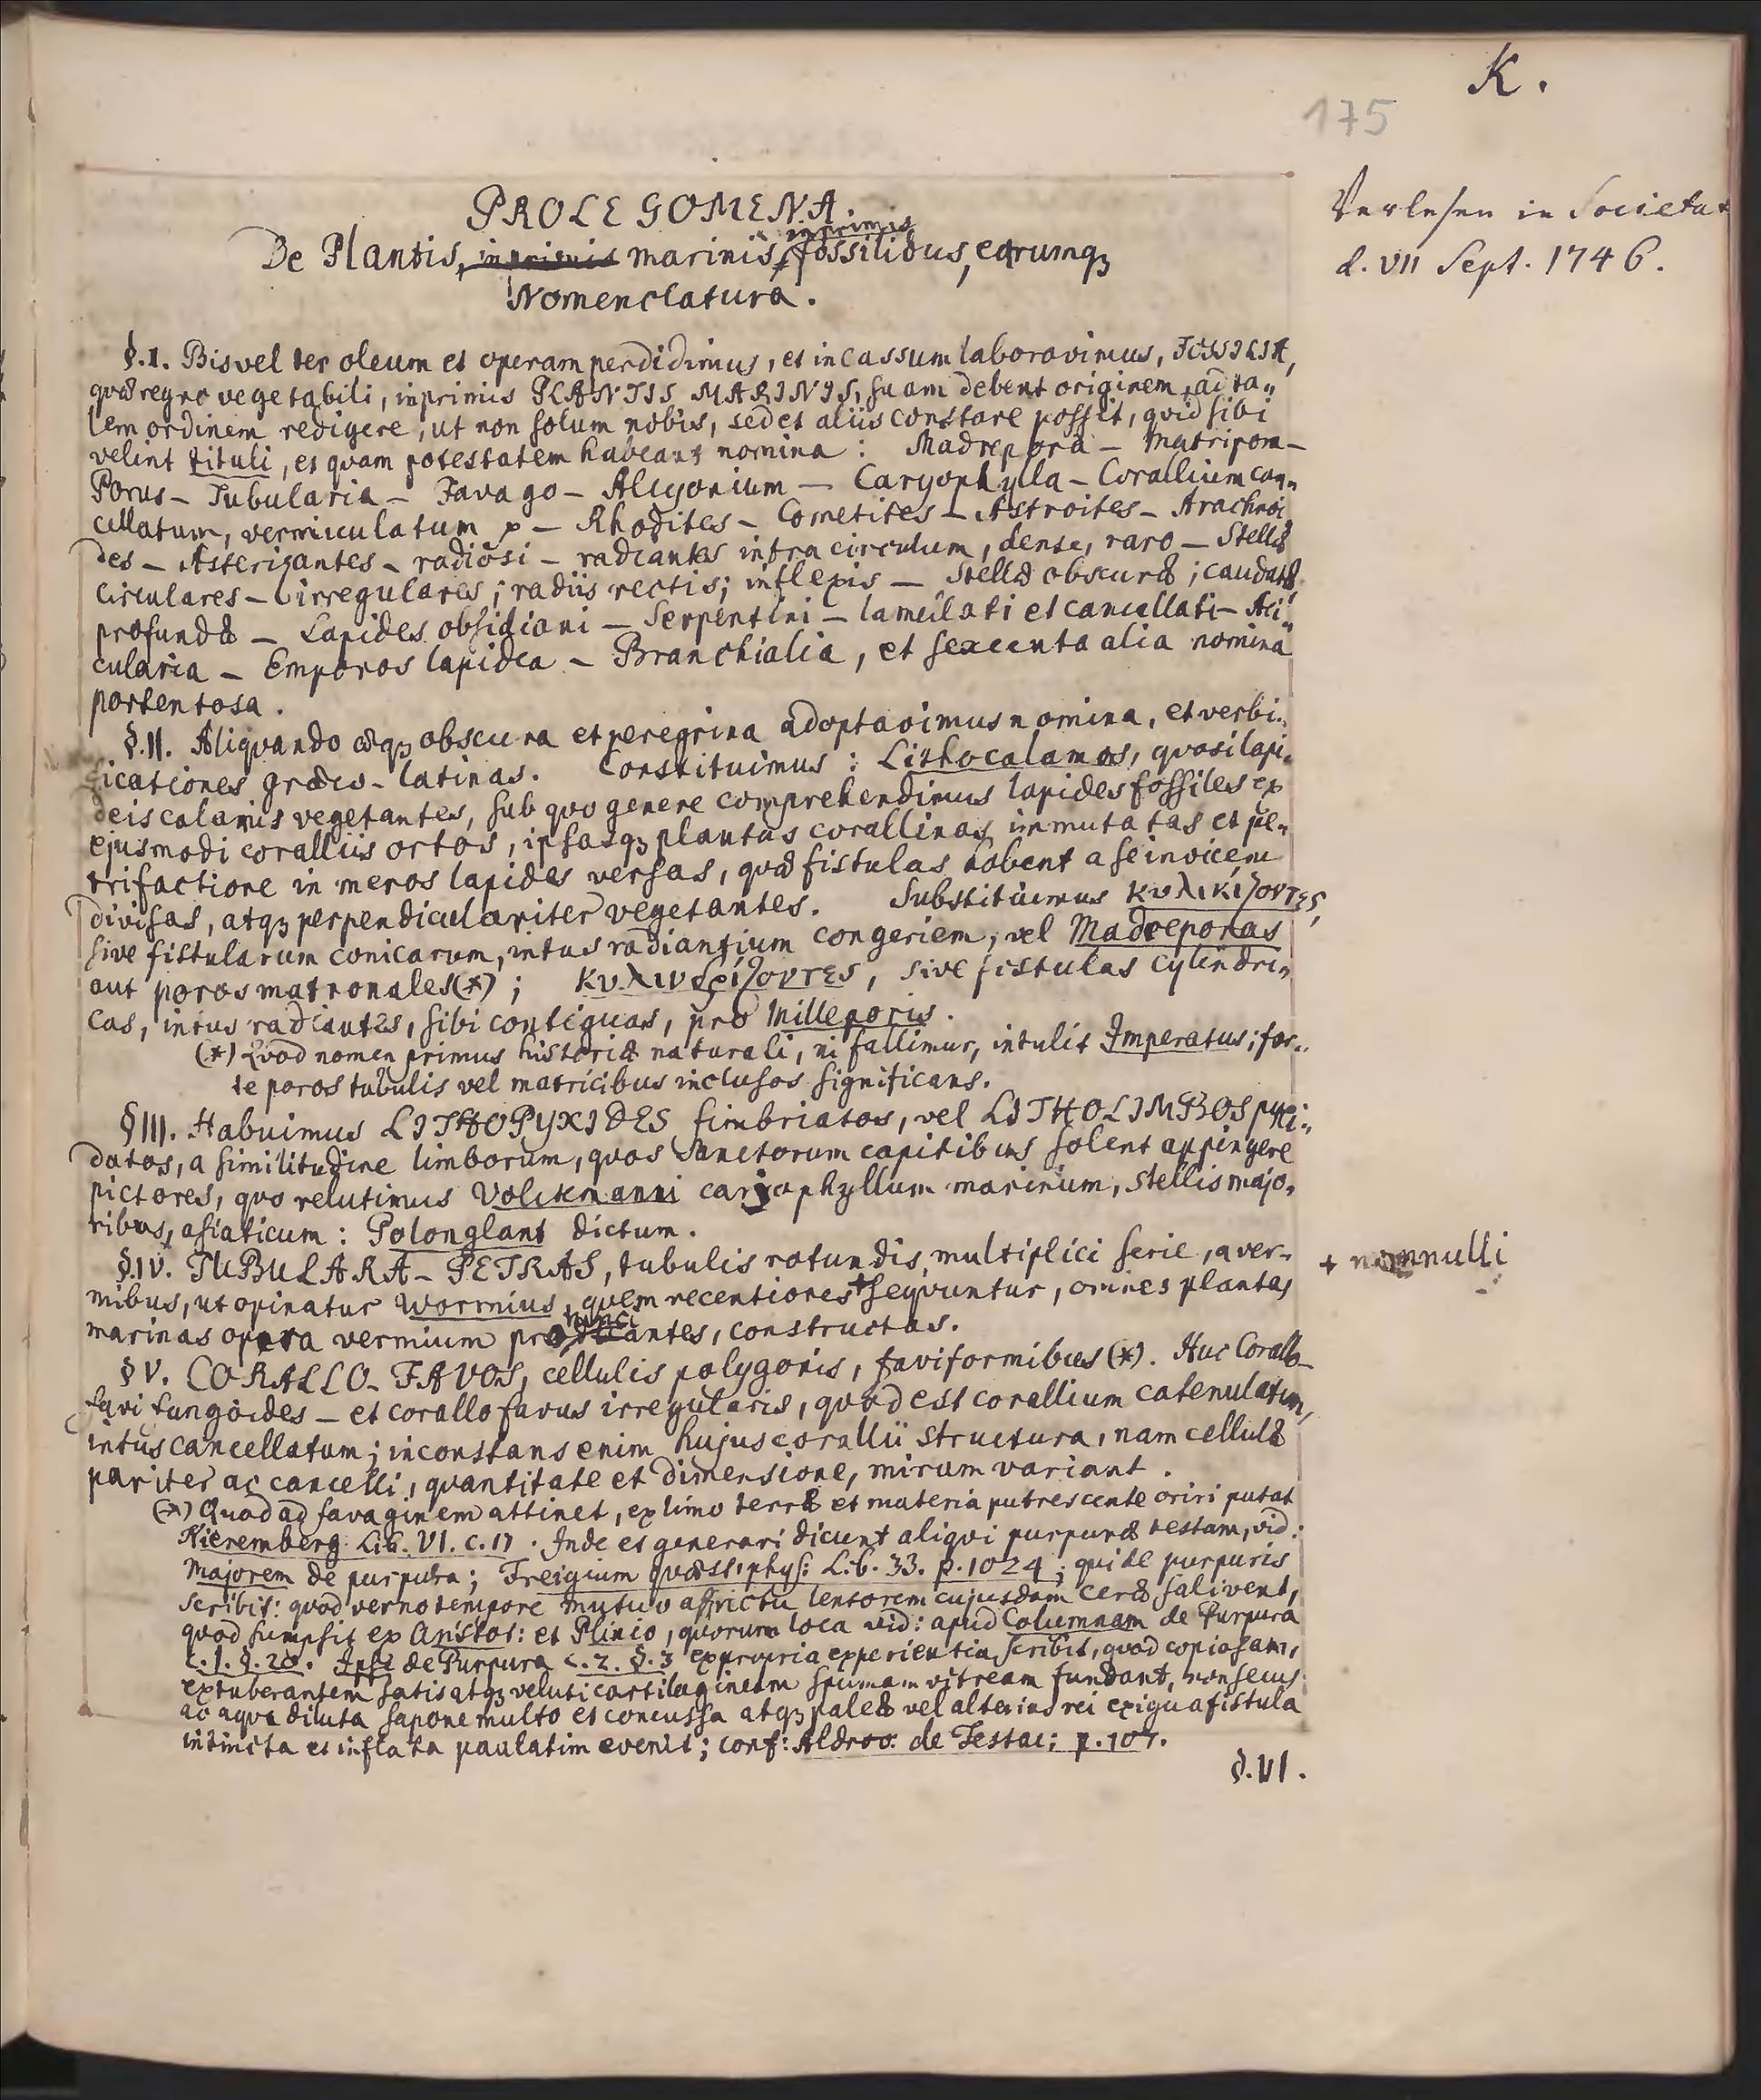 K.
175
Verlesen in Societat
d. VII Sept. 1746.
PROLEGOMENA
De Plantis, inprimis marinis, inprimis fossilibus, earumqꝫ
Nomenclatura.
§.I. Bis vel ter oleum et operam perdidimus, et incassum laboravimus, FOSSILIA,
quæ regno vegetabili, inprimis PLANTIS MARINIS, suam debent originem, ad ta„
lem ordinem redigere, ut non solum nobis, sed et aliis constare possit, quid sibi
velint tituli, et quam potestatem habeant nomina: Madrepora – Matripora –
Porus – Tubularia – Favago – Alcyonium – Caryophylla – Corallium can„
cellatum, vermiculatum – Rhodites – Cometites – Astroites – Arachnoi
des – Asterizantes – radiosi – radiantes infra circulum, dense, raro – Stellæ
circulares – irregulares; radiis rectis; inflexis – Stellæ obscuræ; caudatæ
profundæ – Lapides obsidiani – Serpentini – lamellati et cancellati – Aci„
cularia – Emporos lapidea – Branchialia, et sexcenta alia nomina
portentosa.
§.II. Aliquando æqꝫ obscura et peregrina adoptavimus nomina, et verbi„
ficationes græco-latinas. Constituimus: Lithocalamos, quasi lapi„
deis calamis vegetantes, sub quo genere comprehendimus lapides fossiles ex
ejusmodi coralliis ortos, ipsasqꝫ plantas corallinas immutatas et pe„
trifactione in meros lapides versas, quæ fistulas habent a se invicem
divisas, atqꝫ perpendiculariter vegetantes. Substituimus κυλικίζοντες,
sive fistularum conicarum, intus radiantium congeriem, vel Madreporas
aut poros matronales (*); κυλινδρίζοντες, sive fistulas cylindri„
cas, intus radiantes, sibi contiguas, pro Milleporis.
(*) Quod nomen primus historiæ naturali, ni fallimur, intulit Imperatus; for„
te poros tubulis vel matricibus inclusos significans.
§III. Habuimus LITHOPYXIDES fimbriatos, vel LITHOLIMBOS pyxi„
datos, a similitudine limborum, quos Sanctorum capitibus solent appingere
pictores, quo retulimus Volckmanni caryophyllum marinum, stellis majo„
ribus, asiaticum: Polonglant dictum.
§.IV. TUBULARA-PETRAS, tubulis rotundis, multiplici serie, a ver„
mibus, ut opinatur Wormius, quem recentiores + sequuntur, omnes plantas
+ nonnulli
marinas opera vermium pronunciantes, constructas.
§V. CORALLO-FAVOS, cellulis polygonis, faviformibus (*). Huc Corallo–
favi fungoides – et corallofavus irregularis, quod est corallium catenulatum,
intus cancellatum; inconstans enim hujus corallii structura, nam cellulæ
pariter ac cancelli, quantitate et dimensione, mirum variant.
(*) Quod ad favaginem attinet, ex limo terræ et materia putrescente oriri putat
Nieremberg Lib. VI. c. 17. Inde et generari dicunt aliqui purpuræ testam, vid:
Majorem de purpura; Freigium quæst. phys: Lib. 33. p. 1024; qui de purpuris
scribit: quod verno tempore mutuo affrictu lentorem cujusdam ceræ salivent,
quod sumpsit ex Aristot: et Plinio, quorum loca vid: apud Columnam de Purpura
c. 1. §. 20. Ipse de Purpura c. 2. §. 3 ex propria experientia scribit, quod copiosam,
extuberantem satis atqꝫ veluti cartilagineam spumam vitream fundant, non secus
ac aqva diluta sapone multo et concussa atqꝫ paleæ vel alterius rei exigua fistula
intincta et inflata paulatim evenit; conf: Aldrov. de Testac: p. 107.
§.VI.